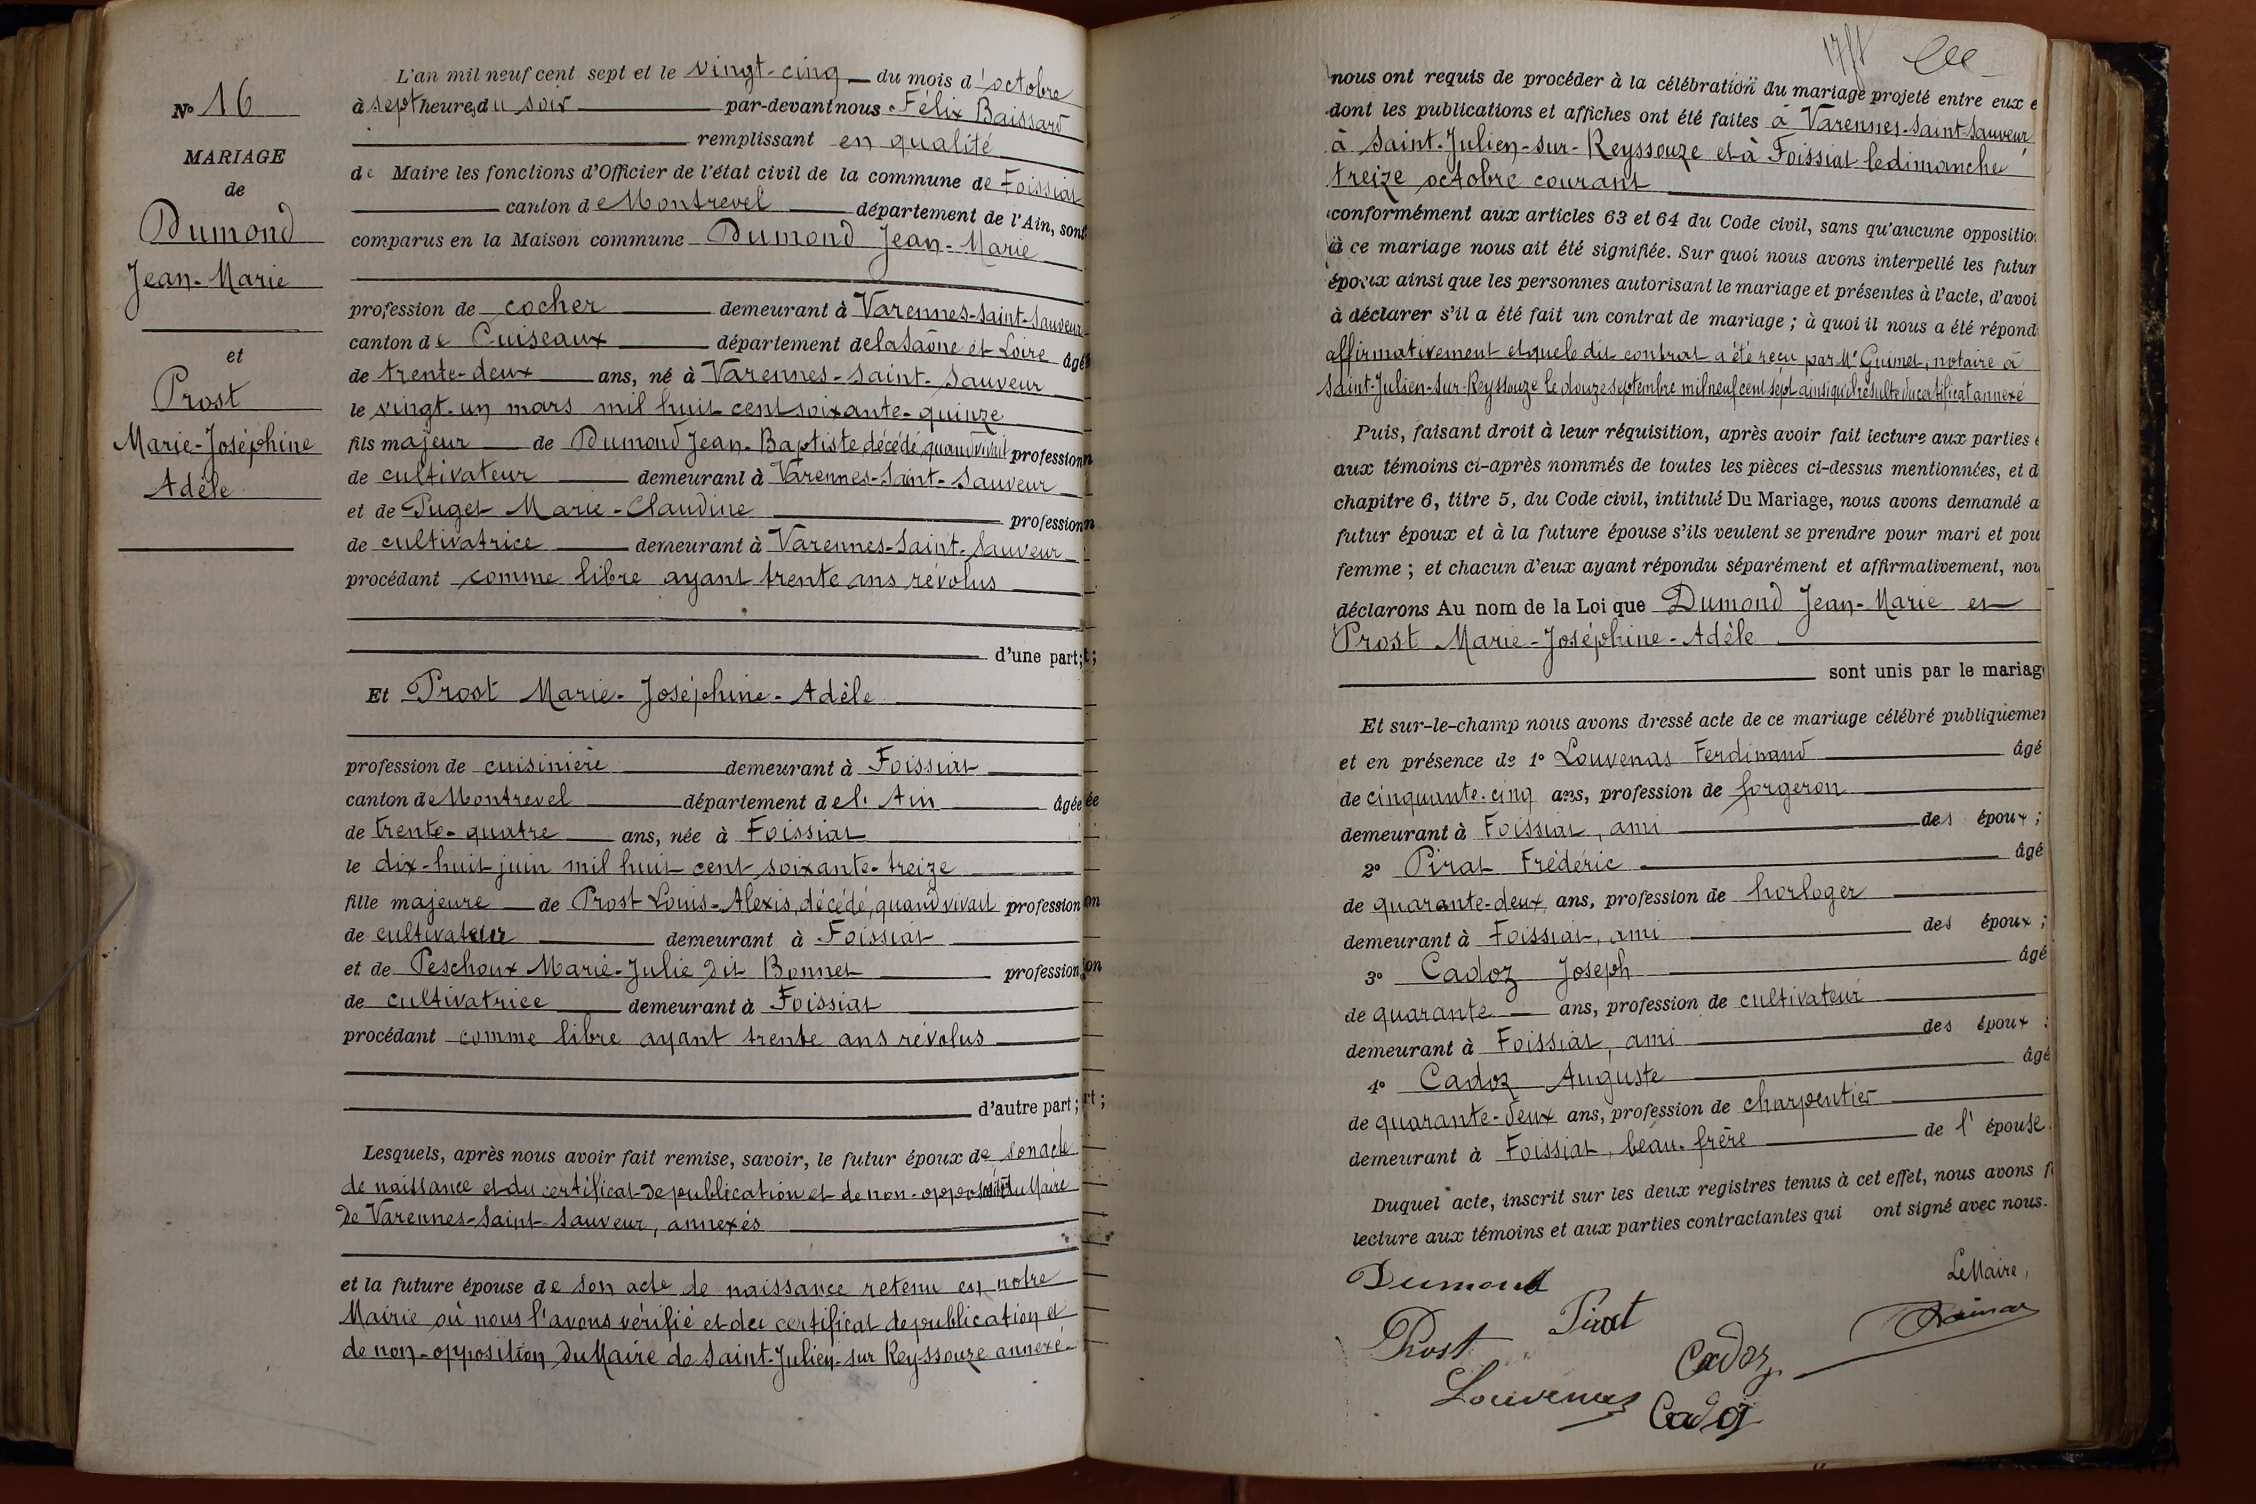 N° 16
MARIAGE
de
Dumond
Jean-Marie
et
Prost
Marie-Joséphine
Adèle
L'an mil neuf cent sept et le vingt-cinq du mois d'octobre
à sept heures du soir par-devant nous Félix Baissard
remplissant en qualité
de Maire les fonctions d'Officier de l'état civil de la commune de Foissiat
canton de Montrevel département de l'Ain, sont
comparus en la Maison commune Dumond Jean-Marie
profession de cocher demeurant à Varennes-Saint-Sauveur
canton de Cuiseaux département de la Saône et Loire âgé
de trente-deux ans, né à Varennes-Saint-Sauveur
le vingt-un mars mil huit cent soixante-quinze
fils majeur de Dumond Jean-Baptiste décédé, quand vivait profession
de cultivateur demeurant à Varennes-Saint-Sauveur
et de Puget Marie-Claudine profession
de cultivatrice demeurant à Varennes-Saint-Sauveur
procédant comme libre ayant trente ans révolus
d'une part;
Et Prost Marie-Joséphine-Adèle
profession de cuisinière demeurant à Foissiat
canton de Montrevel département de l'Ain âgée
de trente-quatre ans, née à Foissiat
le dix-huit juin mil huit cent soixante-treize
fille majeure de Prost Louis-Alexis, décédé, quand vivait profession
de cultivateur demeurant à Foissiat
et de Peschoux Marie-Julie dit Bonnet profession
de cultivatrice demeurant à Foissiat
procédant comme libre ayant trente ans révolus
d'autre part;
Lesquels, après nous avoir fait remise, savoir, le futur époux de son acte
de naissance et du certificat de publication et de non-opposition du Maire
de Varennes-Saint-Sauveur, annexés
et la future épouse de son acte de naissance retenu en notre
Mairie où nous l'avons vérifié et du certificat de publication et
de non-opposition du Maire de Saint-Julien-sur Reyssouze annexé.
nous ont requis de procéder à la célébration du mariage projeté entre eux e
dont les publications et affiches ont été faites à Varennes-Saint-Sauveur
à Saint-Julien-sur-Reyssouze et à Foissiat le dimanche
treize octobre courant
conformément aux articles 63 et 64 du Code civil, sans qu'aucune opposition
à ce mariage nous ait été signifiée. Sur quoi nous avons interpellé les futur
époux ainsi que les personnes autorisant le mariage et présentes à l'acte, d'avoi
à déclarer s'il a été fait un contrat de mariage; à quoi il nous a été répond
affirmativement et que le dit contrat a été reçu par Me Guimet, notaire à
Saint-Julien-sur-Reyssouze le douze septembre mil neuf cent sept ainsi qu'il résulte du certificat annexé
Puis, faisant droit à leur réquisition, après avoir fait lecture aux parties e
aux témoins ci-après nommés de toutes les pièces ci-dessus mentionnées, et d
chapitre 6, titre 5, du Code civil, intitulé Du Mariage, nous avons demandé a
futur époux et à la future épouse s'ils veulent se prendre pour mari et pou
femme; et chacun d'eux ayant répondu séparément et affirmativement, nou
déclarons Au nom de la Loi que Dumond Jean-Marie et
Prost Marie-Joséphine-Adèle
sont unis par le mariag
Et sur-le-champ nous avons dressé acte de ce mariage célébré publiquemen
et en présence de 1° Louvenas Ferdinand âgé
de cinquante-cinq ans, profession de forgeron
demeurant à Foissiat, ami des époux;
2° Pirat Frédéric âgé
de quarante-deux ans, profession de horloger
demeurant à Foissiat, ami des époux;
3° Cadoz Joseph âgé
de quarante ans, profession de cultivateur
demeurant à Foissiat, ami des époux;
4° Cadoz Auguste âgé
de quarante-deux ans, profession de charpentier
demeurant à Foissiat, beau-frère de l'épouse.
Duquel acte, inscrit sur les deux registres tenus à cet effet, nous avons f
lecture aux témoins et aux parties contractantes qui ont signé avec nous.
Dumond
Le Maire,
Pirat
Prost
Cadoz
Louvenas
Cadoz